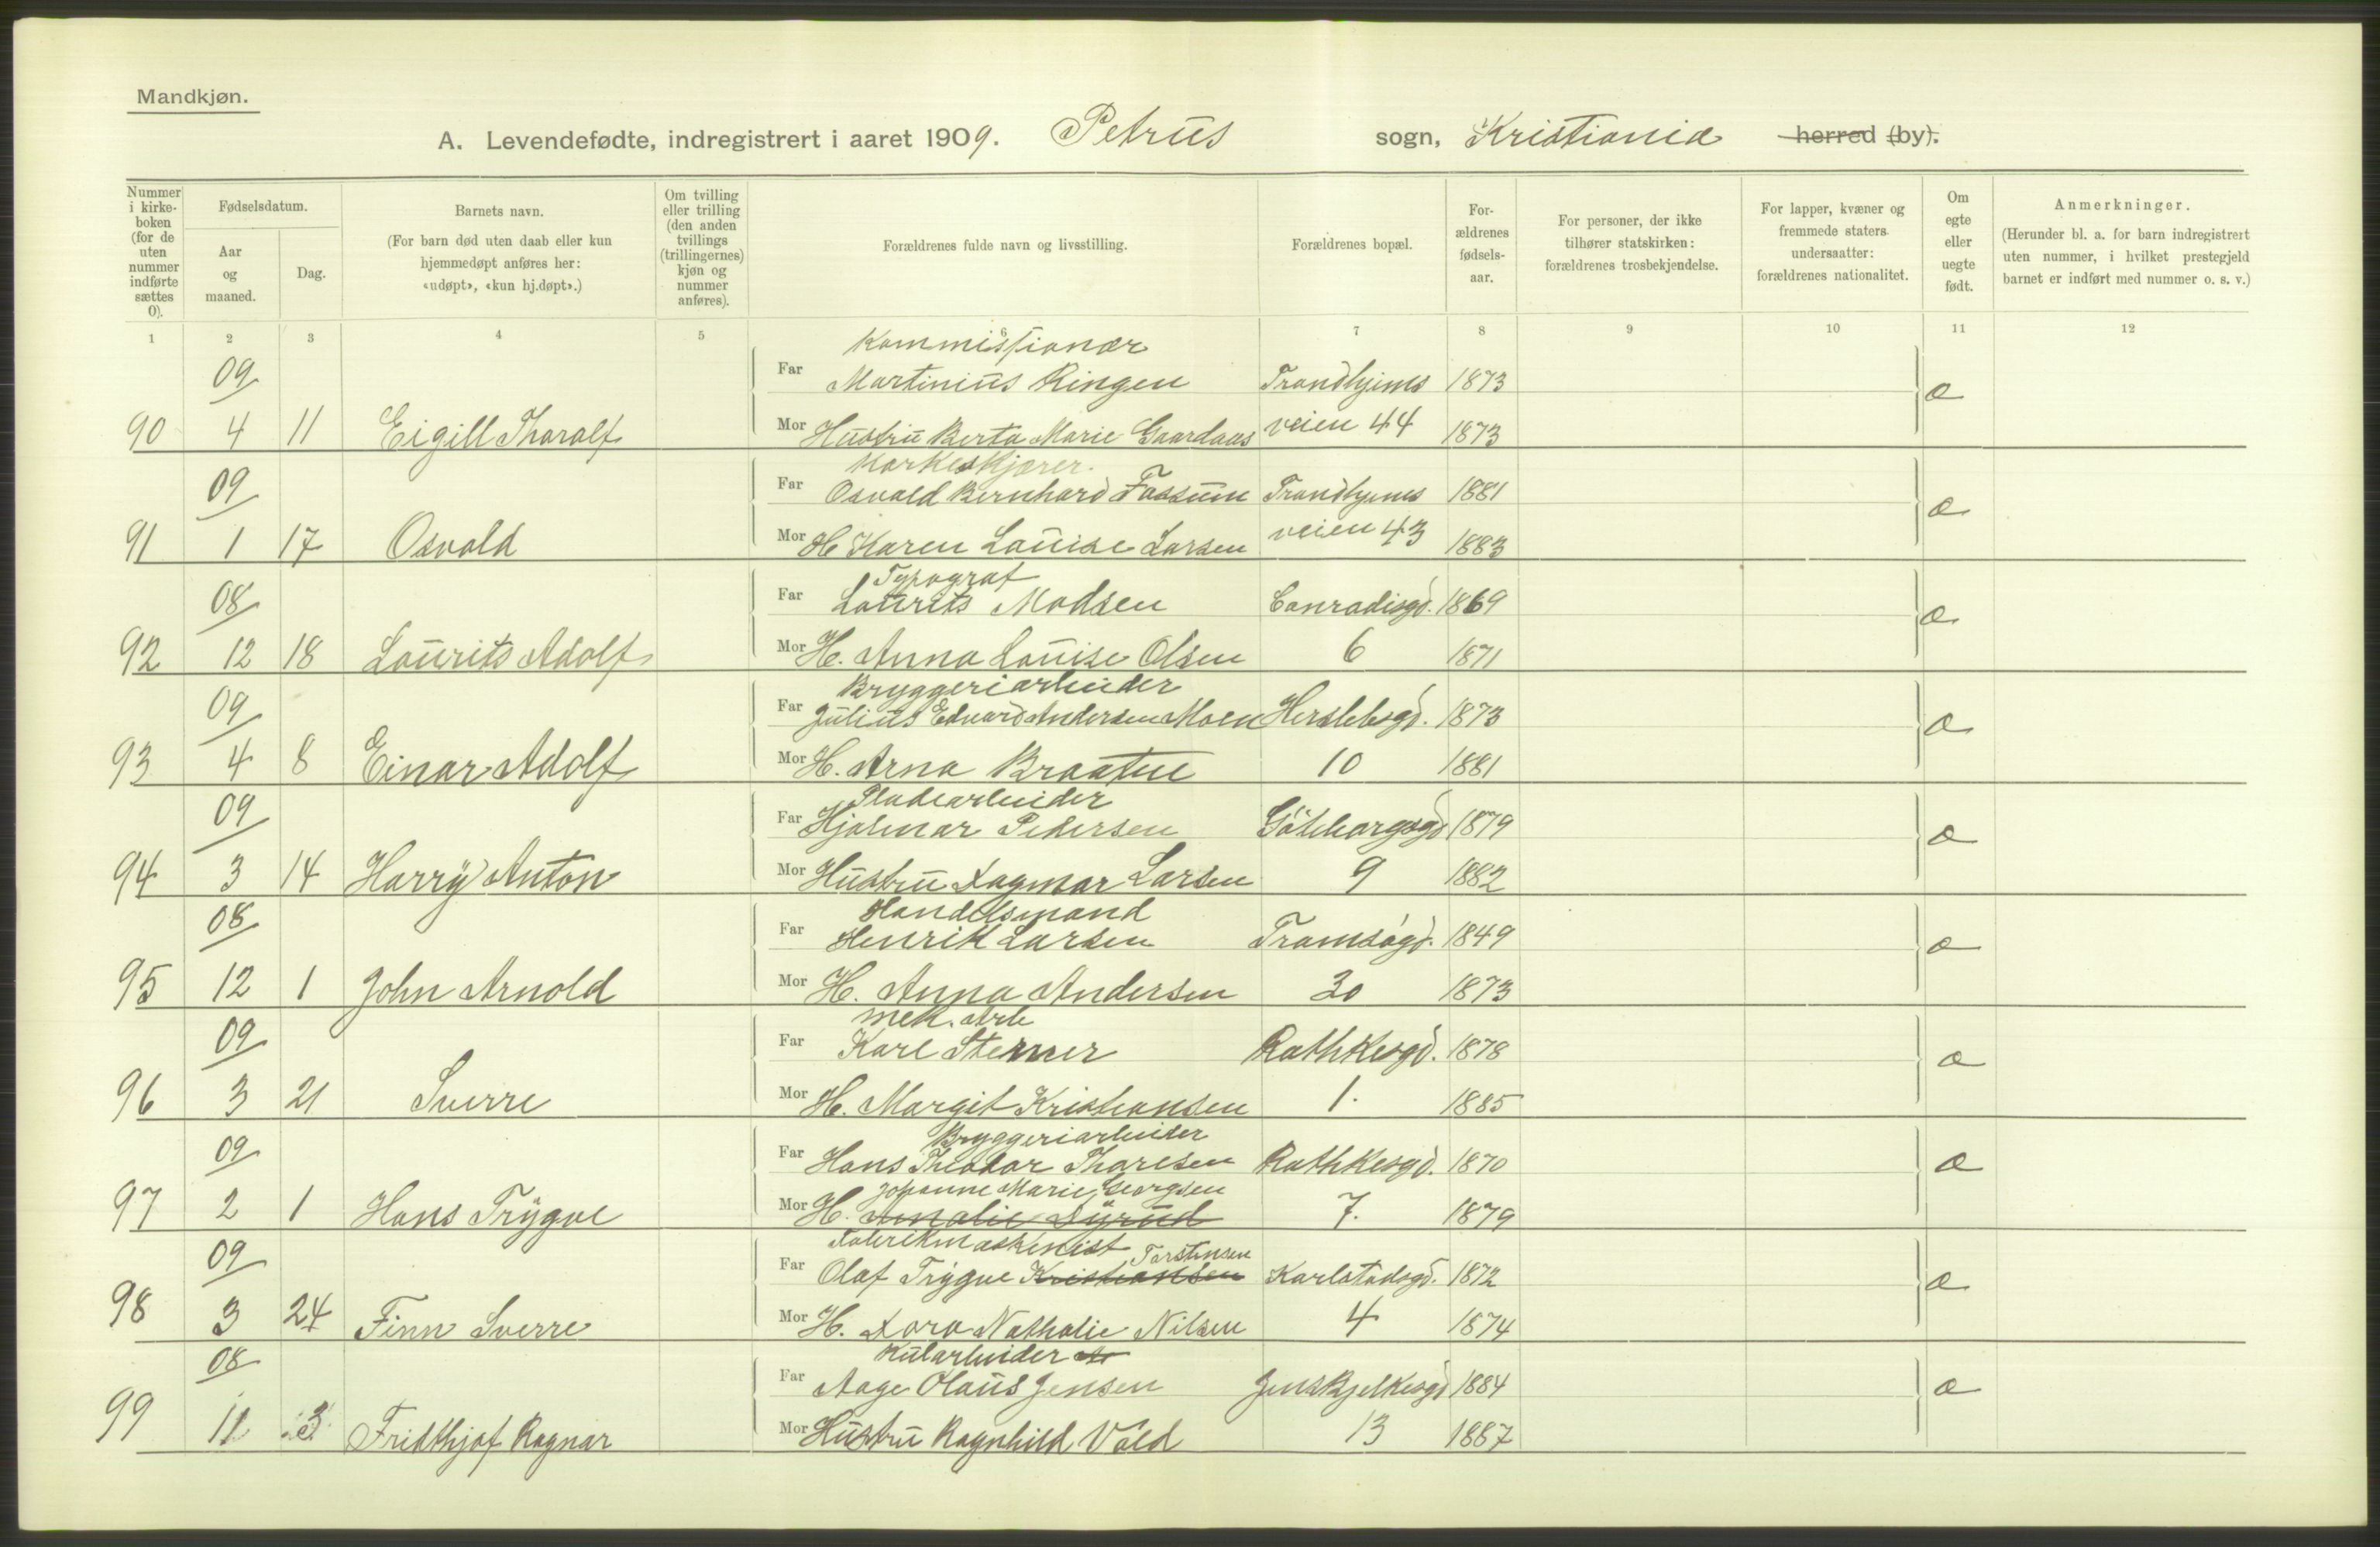 Mandkjøn.
A. Levendefødte, indregistrert i aaret 1909. Petrus sogn, Kristiania herred (by).
Nummer i kirke- boken (for de uten nummer indførte sættes 0).
Fødselsdatum.
Aar og maaned.
Dag.
Barnets navn.
(For barn død uten daab eller kun hjemmedøpt anføres her: «udøpt», «kun hj.døpt».)
Om tvilling eller trilling (den anden tvillings (trillingernes) kjøn og nummer anføres).
Forældrenes fulde navn og livsstilling.
Forældrenes bopæl.
For- ældrenes fødsels- aar.
For personer, der ikke tilhører statskirken: forældrenes trosbekjendelse.
For lapper, kvæner og fremmede staters undersaatter: forældrenes nationalitet.
Om egte eller uegte født.
Anmerkninger.
(Herunder bl. a. for barn indregistrert uten nummer, i hvilket prestegjeld barnet er indført med nummer o. s. v.)
1 2 3 4 5 6 7 8 9 10 11 12
Kommissionær
09 Far Martinius Ringen Trondhjems 1873 æ
90 4 11 Eigill Tharalf Mor Hustru Berta Marie Gaardaas veien 44 1873
Korkeskjærer.
09 Far Osvald Bernhard Fossum Trondhjems 1881 æ
91 1 17 Osvald Mor H Karen Louise Larsen veien 43 1883
Typograf
08 Far Laurits Madsen Conradisgd. 1869 æ
92 12 18 Laurits Adolf Mor H. Anna Louise Olsen 6 1871
Bryggeriarbeider
09 Far Julius Edvard Andersen Moen Herslebsgd. 1873 æ
93 4 8 Einar Adolf Mor H. Arna Braaten 10 1881
Pladearbeider
09 Far Hjalmar Pedersen Göteborgsgd 1879 æ
94 3 14 Harry Anton Mor Hustru Dagmar Larsen 9 1882
Handelsmand
08 Far Henrik Larsen Tromsögd. 1849 æ
95 12 1 John Arnold Mor H. Anna Andersen 30 1873
Mek. arb
09 Far Karl Sterner Rathkesgd. 1878 æ
96 3 21 Sverre Mor H. Margit Kristiansen 1. 1885
Bryggeriarbeider
09 Far Hans Theodor Thoresen Rathkesgd. 1870 æ
Johanne Marie Georgsen
97 2 1 Hans Trygve Mor H. Amalie Dyrud 7. 1879
Fabrikmaskinist Torstensen
09 Far Olaf Trygve Kristiansen Karlstadsgd. 1872 æ
98 3 24 Finn Sverre Mor H. Dora Nathalie Nilsen 4 1874
Kularbeider
08 Far Aage Olaus Jensen Jens Bjelkesgd 1884 æ
99 11 3 Fridthjof Ragnar Mor Hustru Ragnhild Vold 13 1887